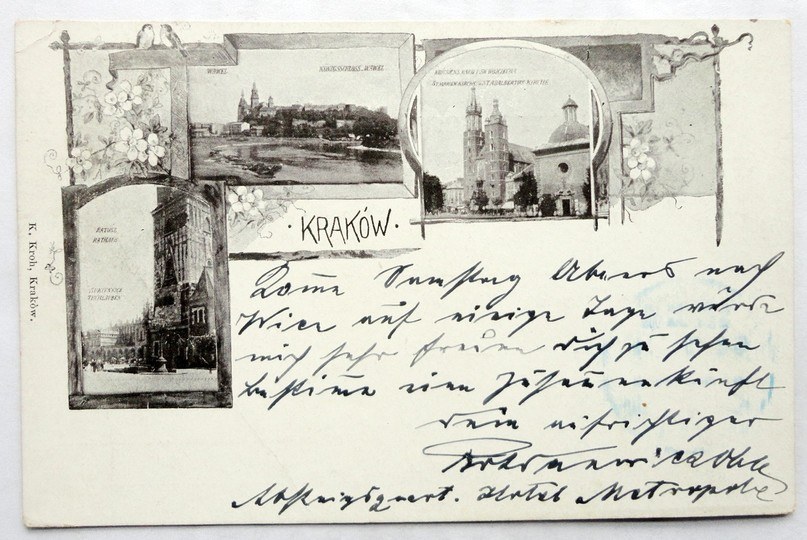 WAWEL KÖNIGSSCHLOSS WAWEL
KIRCHE
RATUSZ
RATHHAUS
SUKIENNICE
TUCHLAUBEN
· KRAKÓW ·
K. Kroh, Kraków.
Komme Samstag Abends nach
Wien auf einige Tage würde
mich sehr freuen dich zu sehen
bestimme eine Zusammenkunft
dein aufrichtiger
Absteigquart. Hotel Metropole